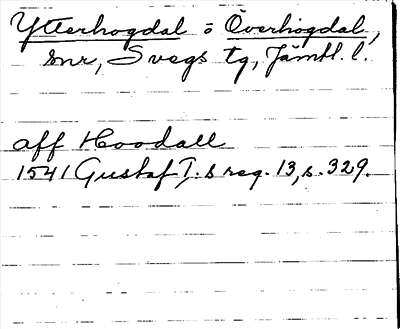 Ytterhogdal o Överhogdal,
snr, Svegs tg, Jämtl. l.
aff Hoodall
1541 Gustaf I:s reg. 13, s. 329.